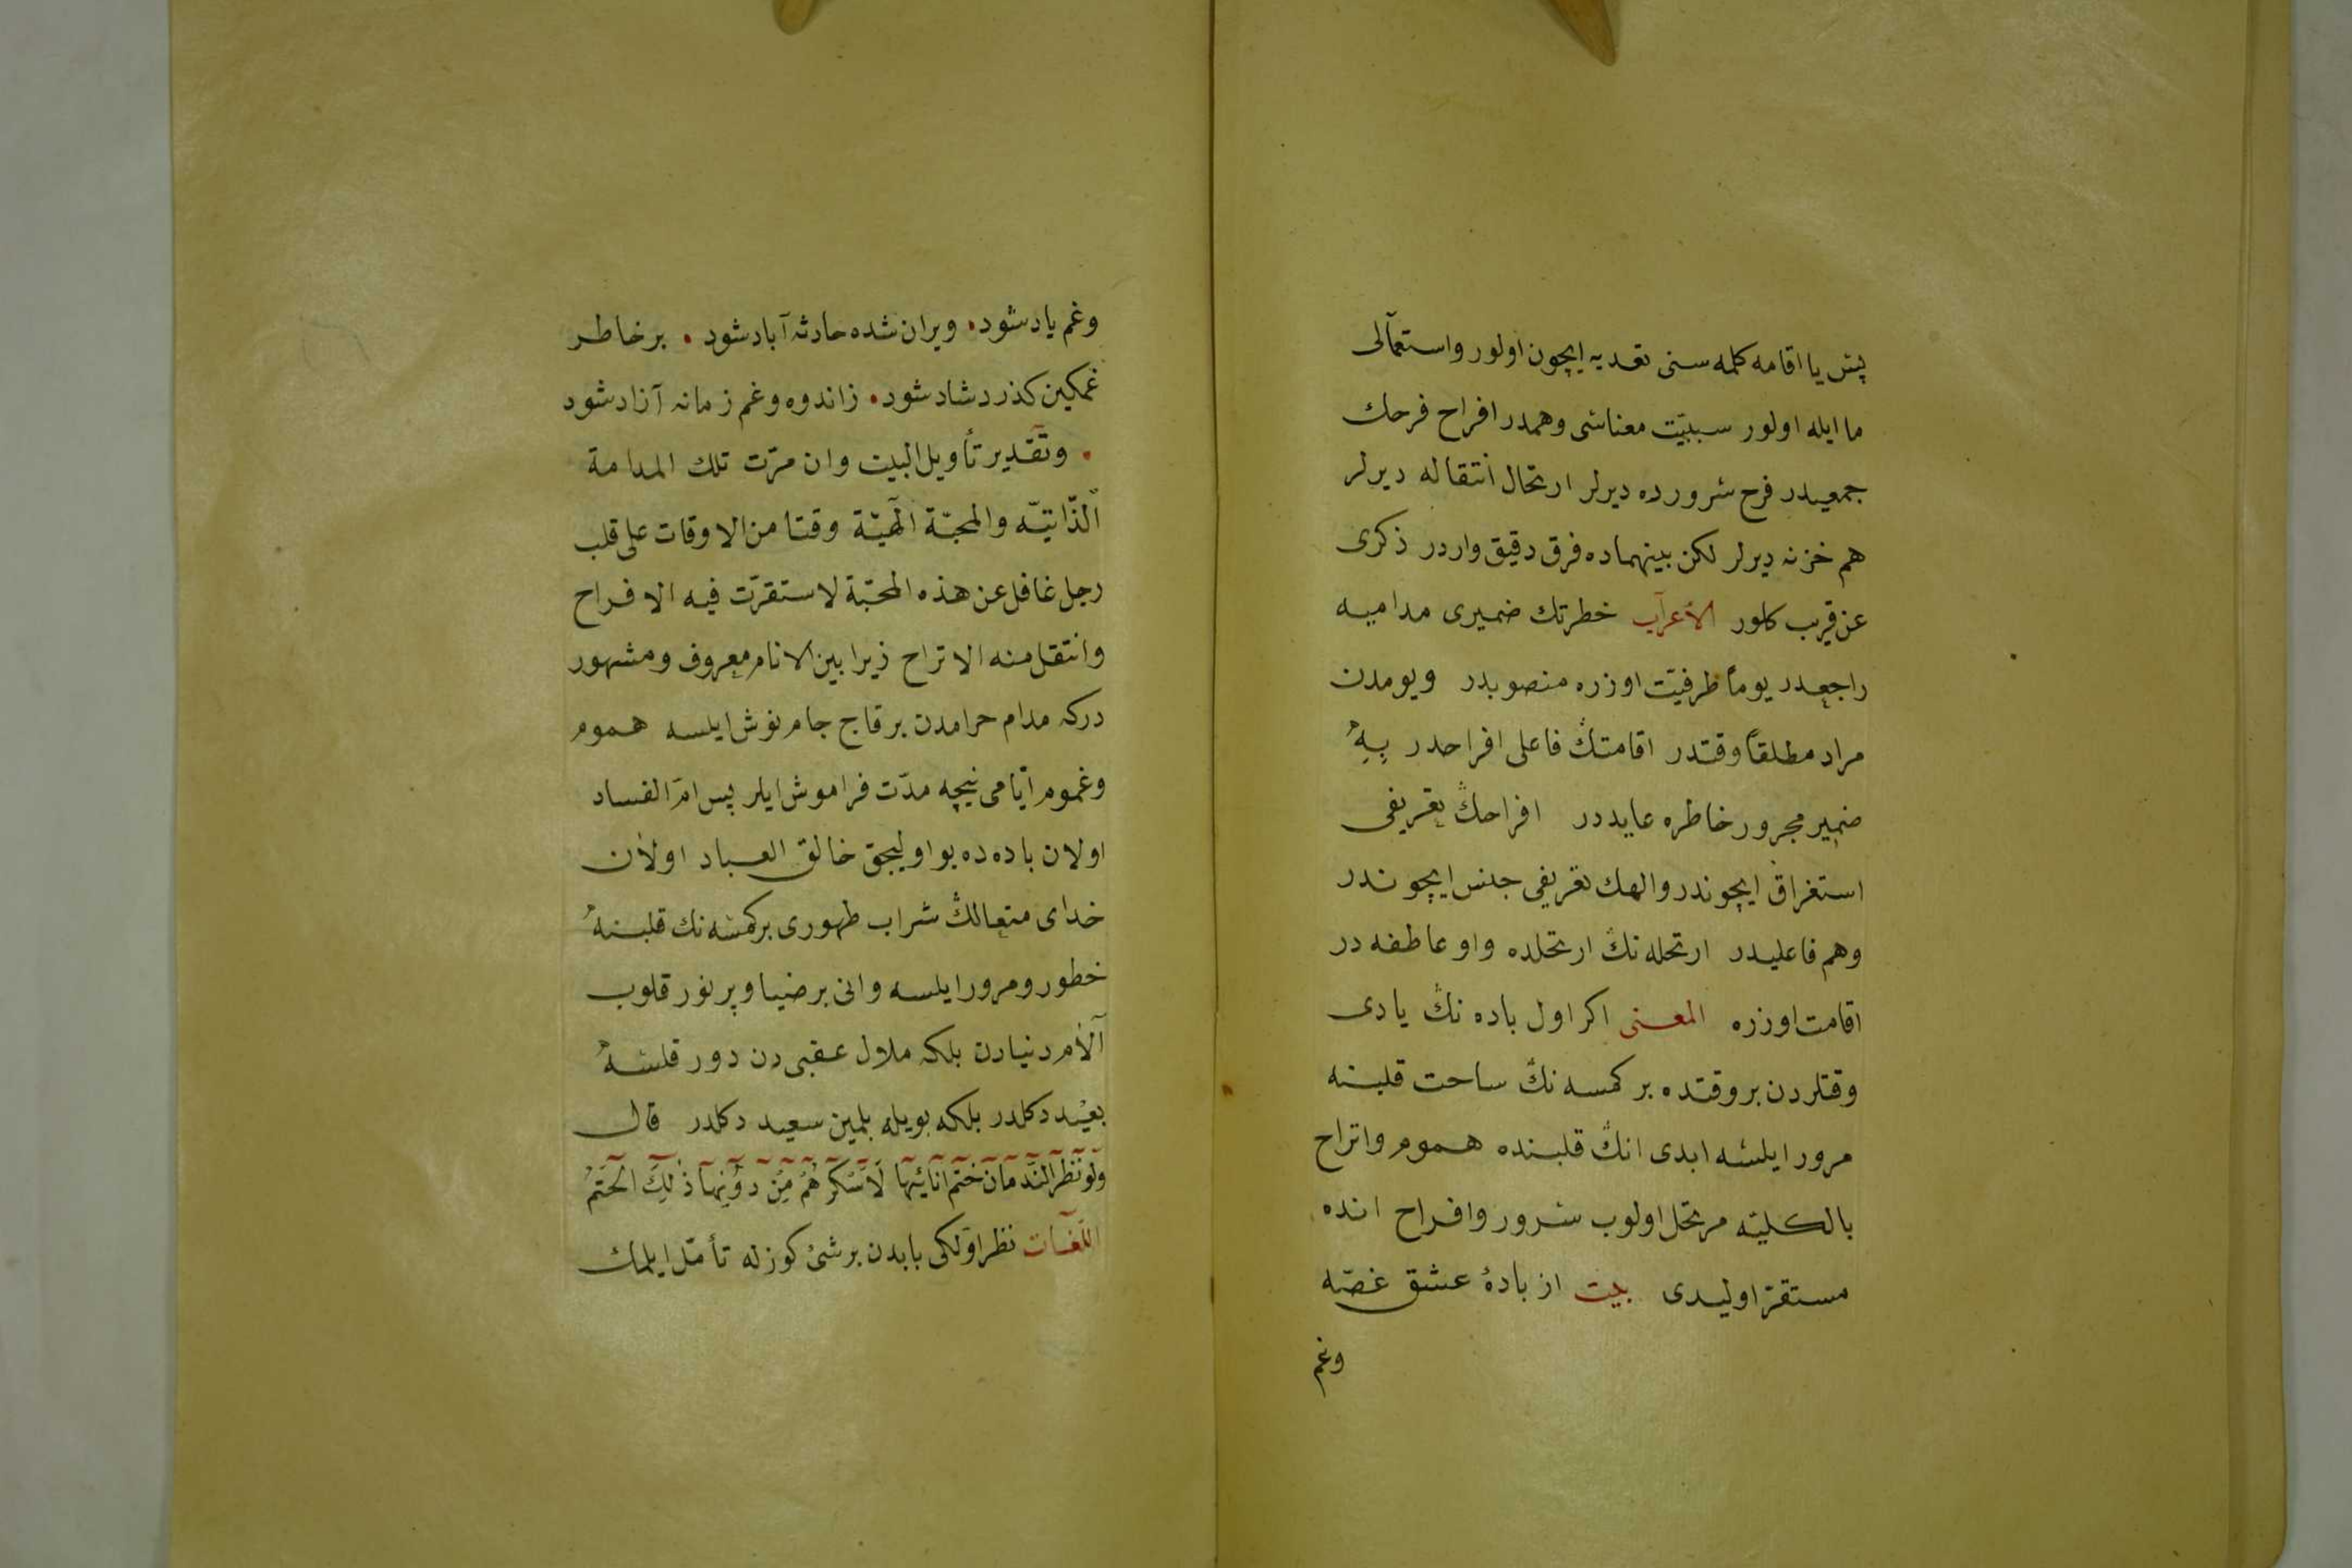 پش یا اقامه کلمه سنی تعدیه ایچون اولور واستعمالی
ما ایله اولور سببیّت معناسی وهمدر افراح فرحك
جمعیدر فرح سروره دیرلر ارتحال انتقاله دیرلر
هم حزنه دیرلر لكن بینهماده فرق دقیق واردر ذکری
عن قریب کلور الأعراب خطرتك ضمیری مدامیه
راجعدر یوماً ظرفیّت اوزره منصوبدر ویومدن
مراد مطلقاً وقتدر اقامتڭ فاعلی افراحدر بِهِ
ضمیر مجرور خاطره عایددر افراحڭ تعریفی
استغراق ایچوندر والهمك تعریفی جنس ایچوندر
وهم فاعلیدر ارتحله نڭ ارتحلده واو عاطفه در
اقامت اوزره المعنی اکر اول باده نڭ یادی
وقتلردن بر وقتده بر کمسه نڭ ساحت قلبنه
مرور ایلسه ابدی انڭ قلبنده هموم واتراح
بالکلیّه مرتحل اولوب سرور وافراح انده
مستقرّ اولیدی بیت از بادهٔ عشق غصّه
وغم
وغم یاد شود. ویران شده حادثه آباد شود. بر خاطر
غمکین کذرد شاد شود. ز اندوه وغم زمانه آزاد شود
. وتقدیر تأویل البیت وان مرّت تلك المدامة
الذّاتیّه والمحبّة الٓهیّة وقتا من الاوقات علی قلب
رجل غافل عن هذه المحبّة لاستقرّت فیه الافراح
وانتقل منه الاتراح زیرا بین الانام معروف ومشهور
درکه مدام حرامدن بر قاج جام نوش ایلسه هموم
وغموم ایّامی نیچه مدّت فراموش ایلر پس امّ الفساد
اولان باده ده بو اولیجق خالق العباد اولان
خدای متعالڭ شراب طهوری بر کمسه نك قلبنه
خطور ومرور ایلسه وانی بر ضیا وپر نور قلوب
آلام دنیادن بلکه ملال عقبی دن دور قلسه
بعید دکلدر بلکه بویله بلمین سعید دکلدر قال
وَلَوْ نَظَرَ النَّدْمَانُ خَتْمَ انَائِهَا لَاَسْكَرَهُمْ مِنْ دُونِهَا ذٰلِكَ الْخَتْمُ
اللّغات نظر اوّلکی بابدن بر شیٔ کوزله تأمّل ایلمك